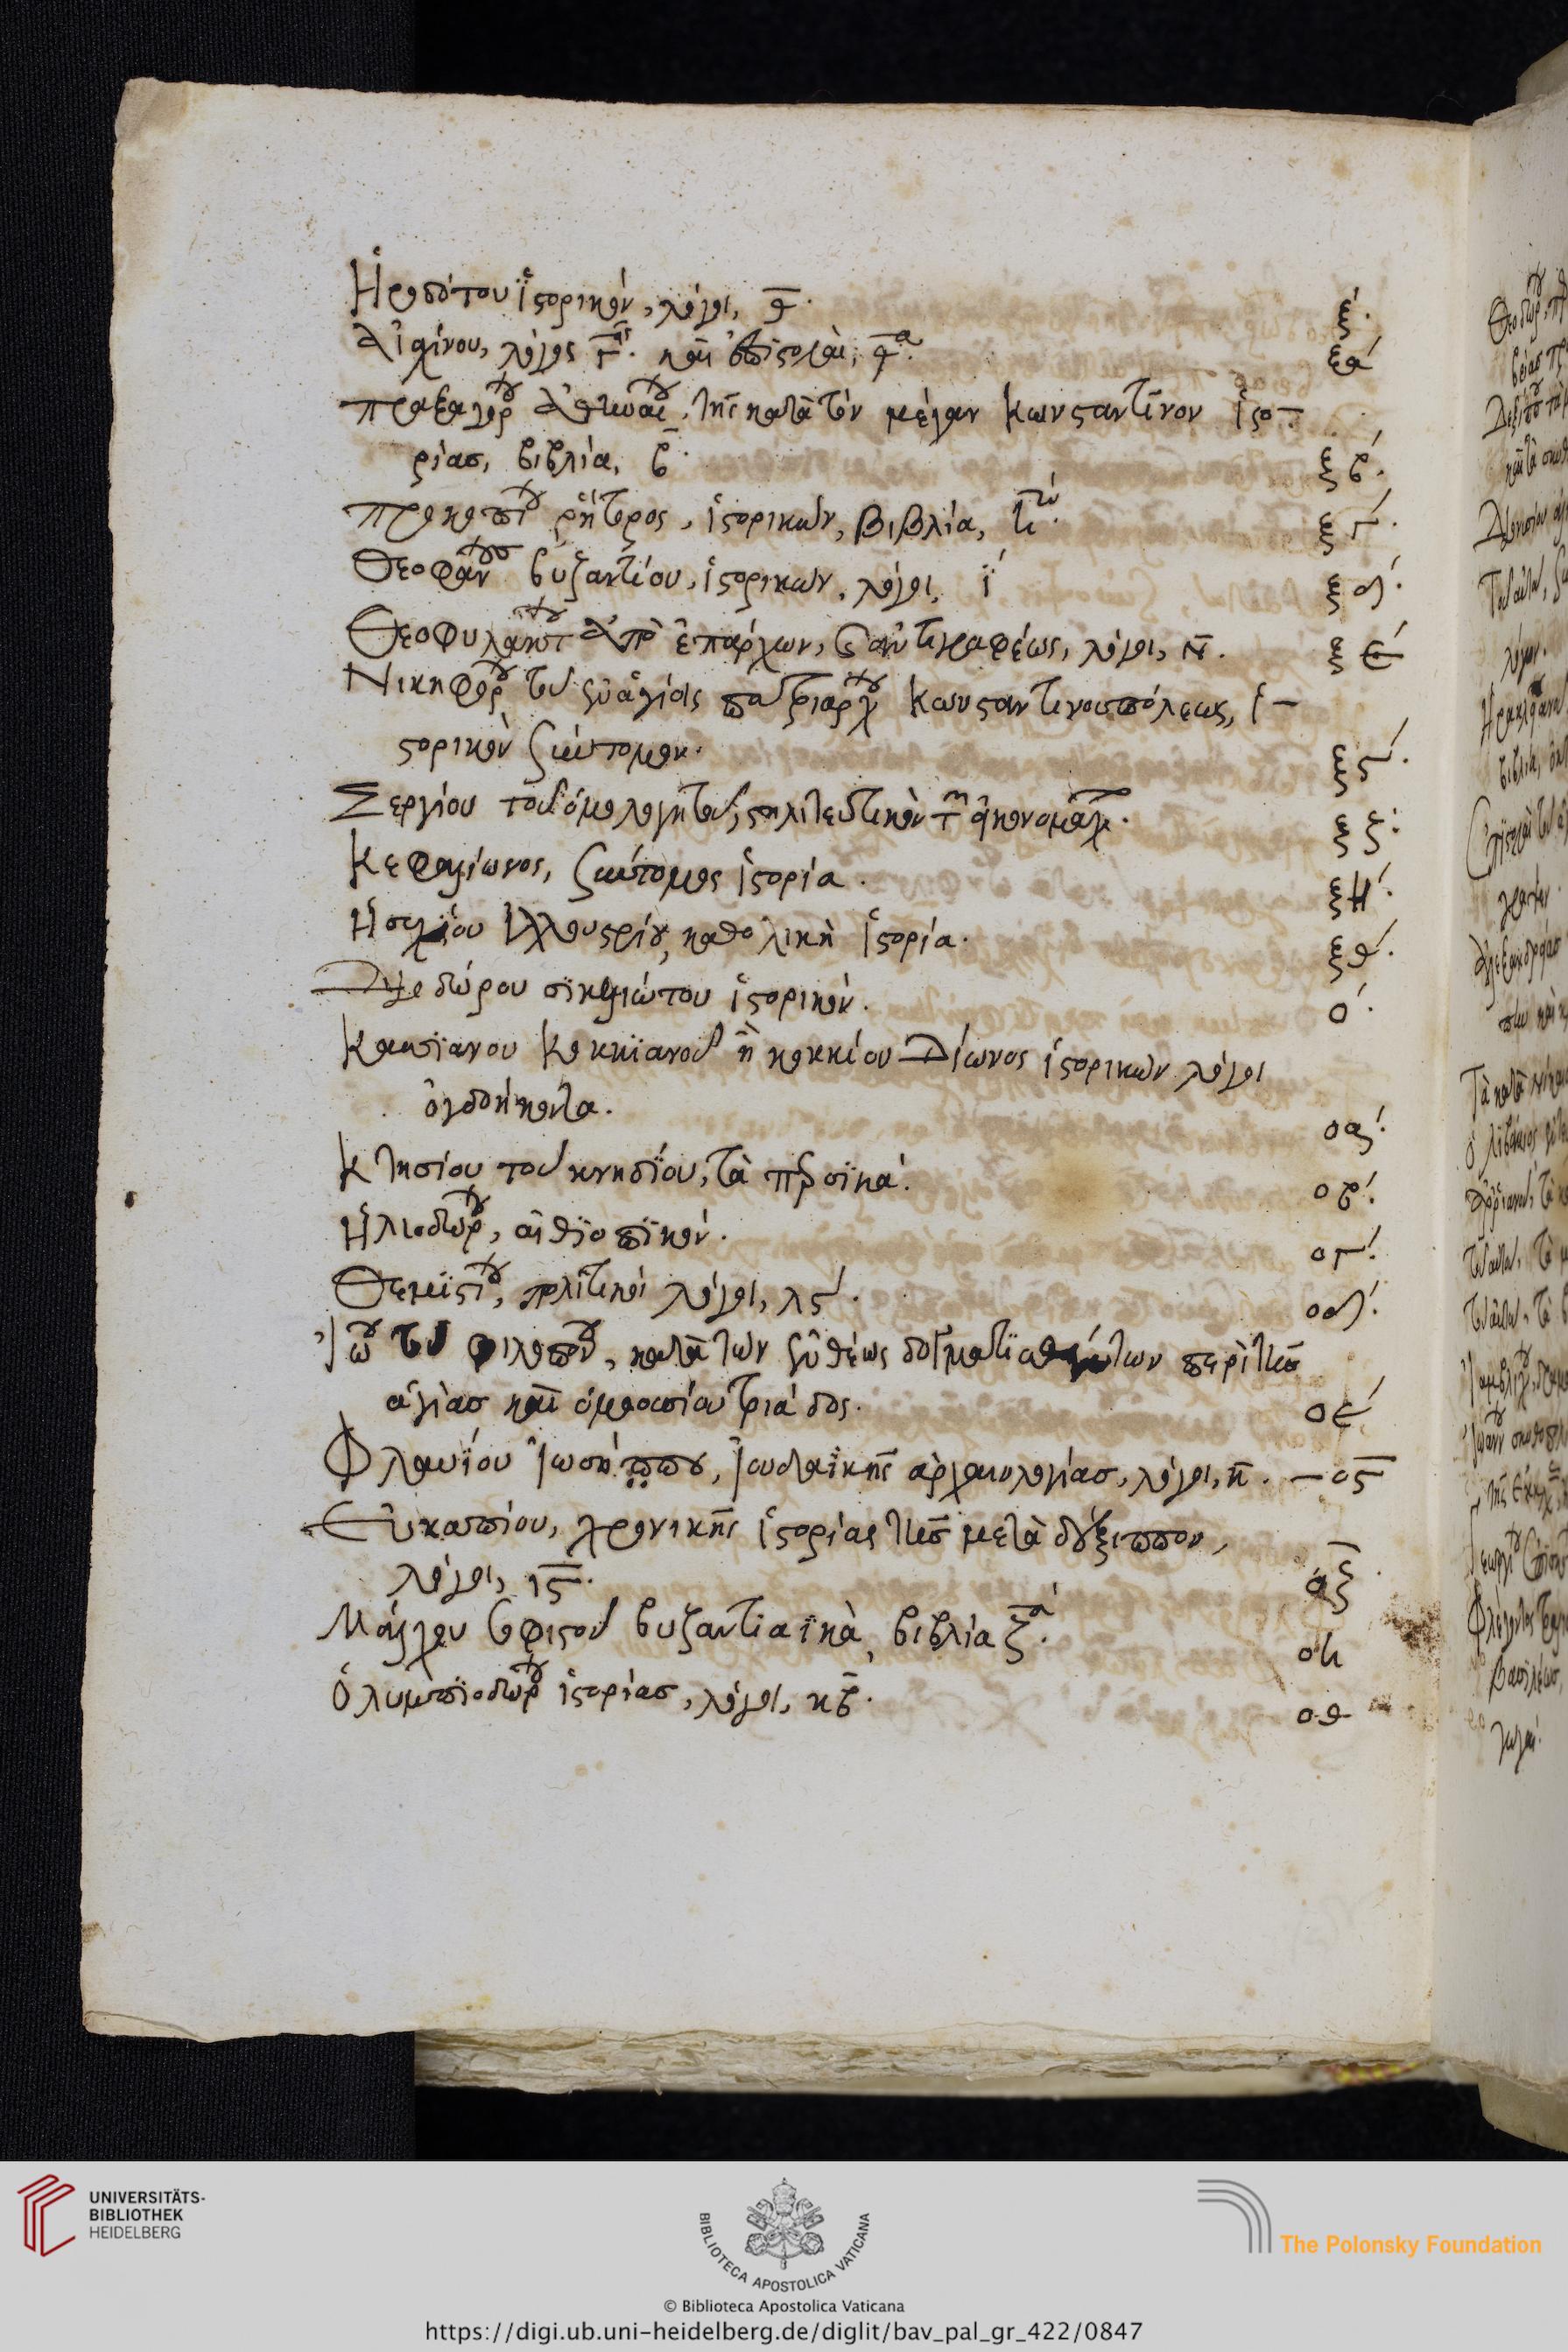 Ἡροδότου ἱστορικόν, λόγοι, θ. ξ.
Αἰσχίνου, λόγοι γ. καὶ ἐπιστολαὶ, θ. ξα
Πραξαγόρου Ἀθηναίου. τῆς κατὰ τὸν μέγαν Κωνσταντῖνον ἱστο-
ρίας, βιβλία, β. ξβ.
Προκοπίου ῥήτορος, ἱστορικῶν, βιβλία, η. ξγ.
Θεοφάνους βυζαντίου, ἱστορικῶν, λόγοι, ι ξδ.
Θεοφυλάκτου ἀπὸ ἐπάρχων, ἀντιγραφέως, λόγοι, η. ξε
Νικηφόρου τοῦ ἐν ἁγίοις πατριάρχου Κωνσταντινουπόλεως, ἱ-
στορικὸν σύντομον. ξς.
Σεργίου τοῦ ὁμολογητοῦ, στηλιτευτικὸν τῶν εἰκονομάχων. ξζ.
Κεφαλίωνος, σύντομος ἱστορία. ξη.
Ἡσυχίου Ἰλλουστρίου, καθολικὴ ἱστορία. ξθ.
Διοδώρου σικελιώτου ἱστορικόν. ο.
Κασσιανου Κοκκιανοῦ ἢ κοκκίου Δίωνος ἱστορικῶν λόγοι
ὀγδοήκοντα. οα.
Κτησίου τοῦ κνηδίου, τὰ περσικά. οβ.
Ἡλιοδώρου, αἰθιοπικόν. ογ.
Θεμιστίου, πολιτικοὶ λόγοι, λς. οδ.
Ἰωάννου τοῦ φιλοπόνου, κατὰ τῶν ἐνθέως δογματισθέντων περὶ τῆς
ἁγίας καὶ ὁμοουσίου τριάδος. οε
Φλαυίου Ἰωσήππου, Ἰουδαϊκῆς ἀρχαιολογίας, λόγοι, κ. ος
Εὐναπίου, χρονικῆς ἱστορίας τῆς μετὰ δέξιππον,
λόγοι, ις. οζ
Μάλχου σοφιστοῦ βυζαντιαϊκὰ, βιβλία ζ. οη
Ὀλυμπιοδώρου ἱστορίας, λόγοι, κβ. οθ
UNIVERSITÄTS-
BIBLIOTHEK
HEIDELBERG
BIBLIOTECA APOSTOLICA VATICANA
The Polonsky Foundation
© Biblioteca Apostolica Vaticana
https://digi.ub.uni-heidelberg.de/diglit/bav_pal_gr_422/0847